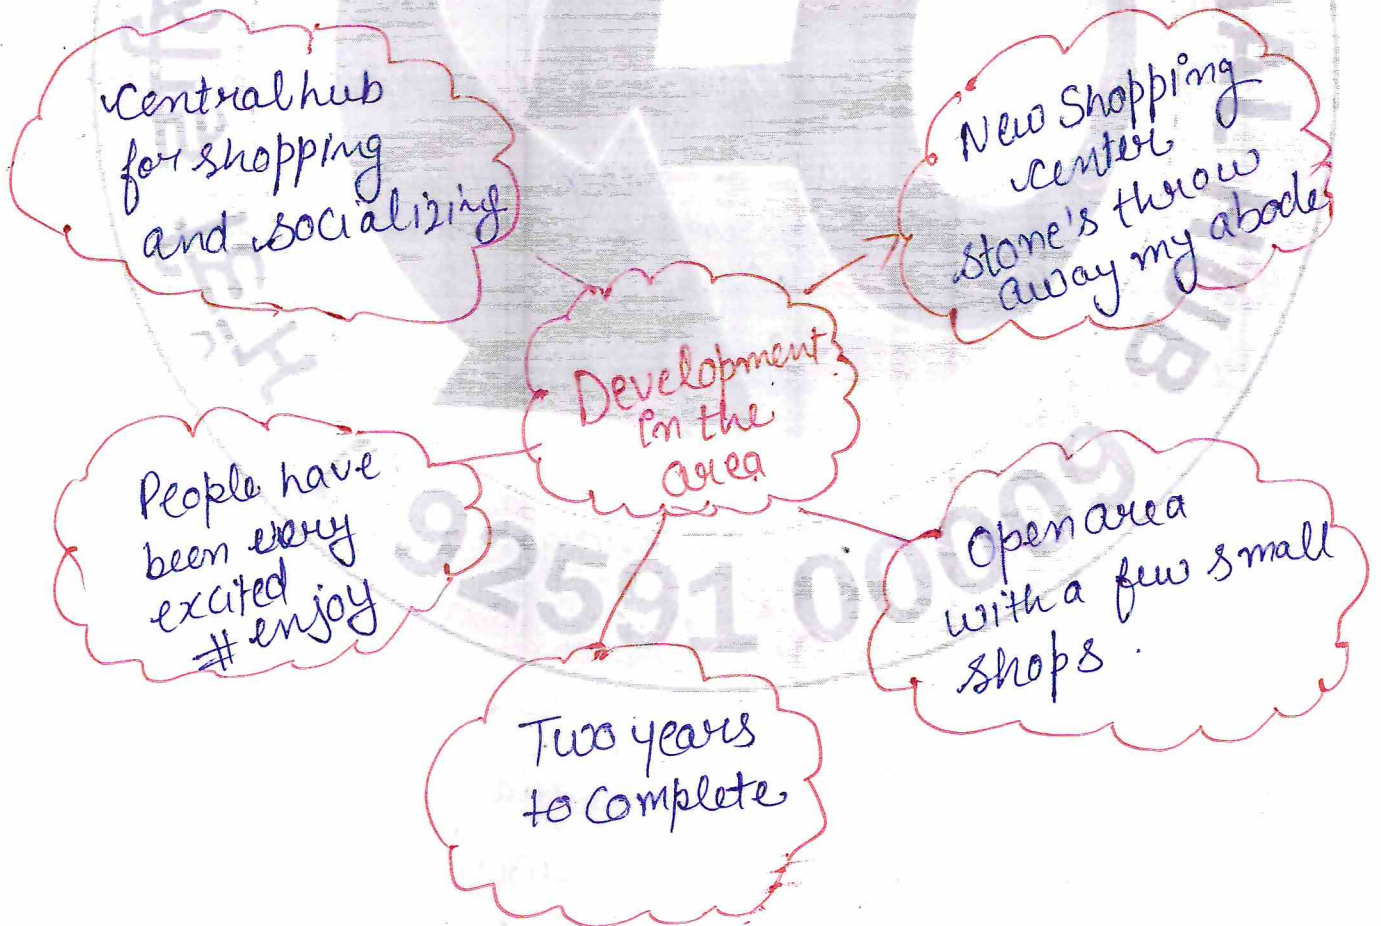 Central hub
for shopping
and socializing
New Shopping
center
stone's throw
away my abode
Development
in the
area
People have
been very
excited
# enjoy
Open area
with a few small
shops.
Two years
to Complete
92591 00009